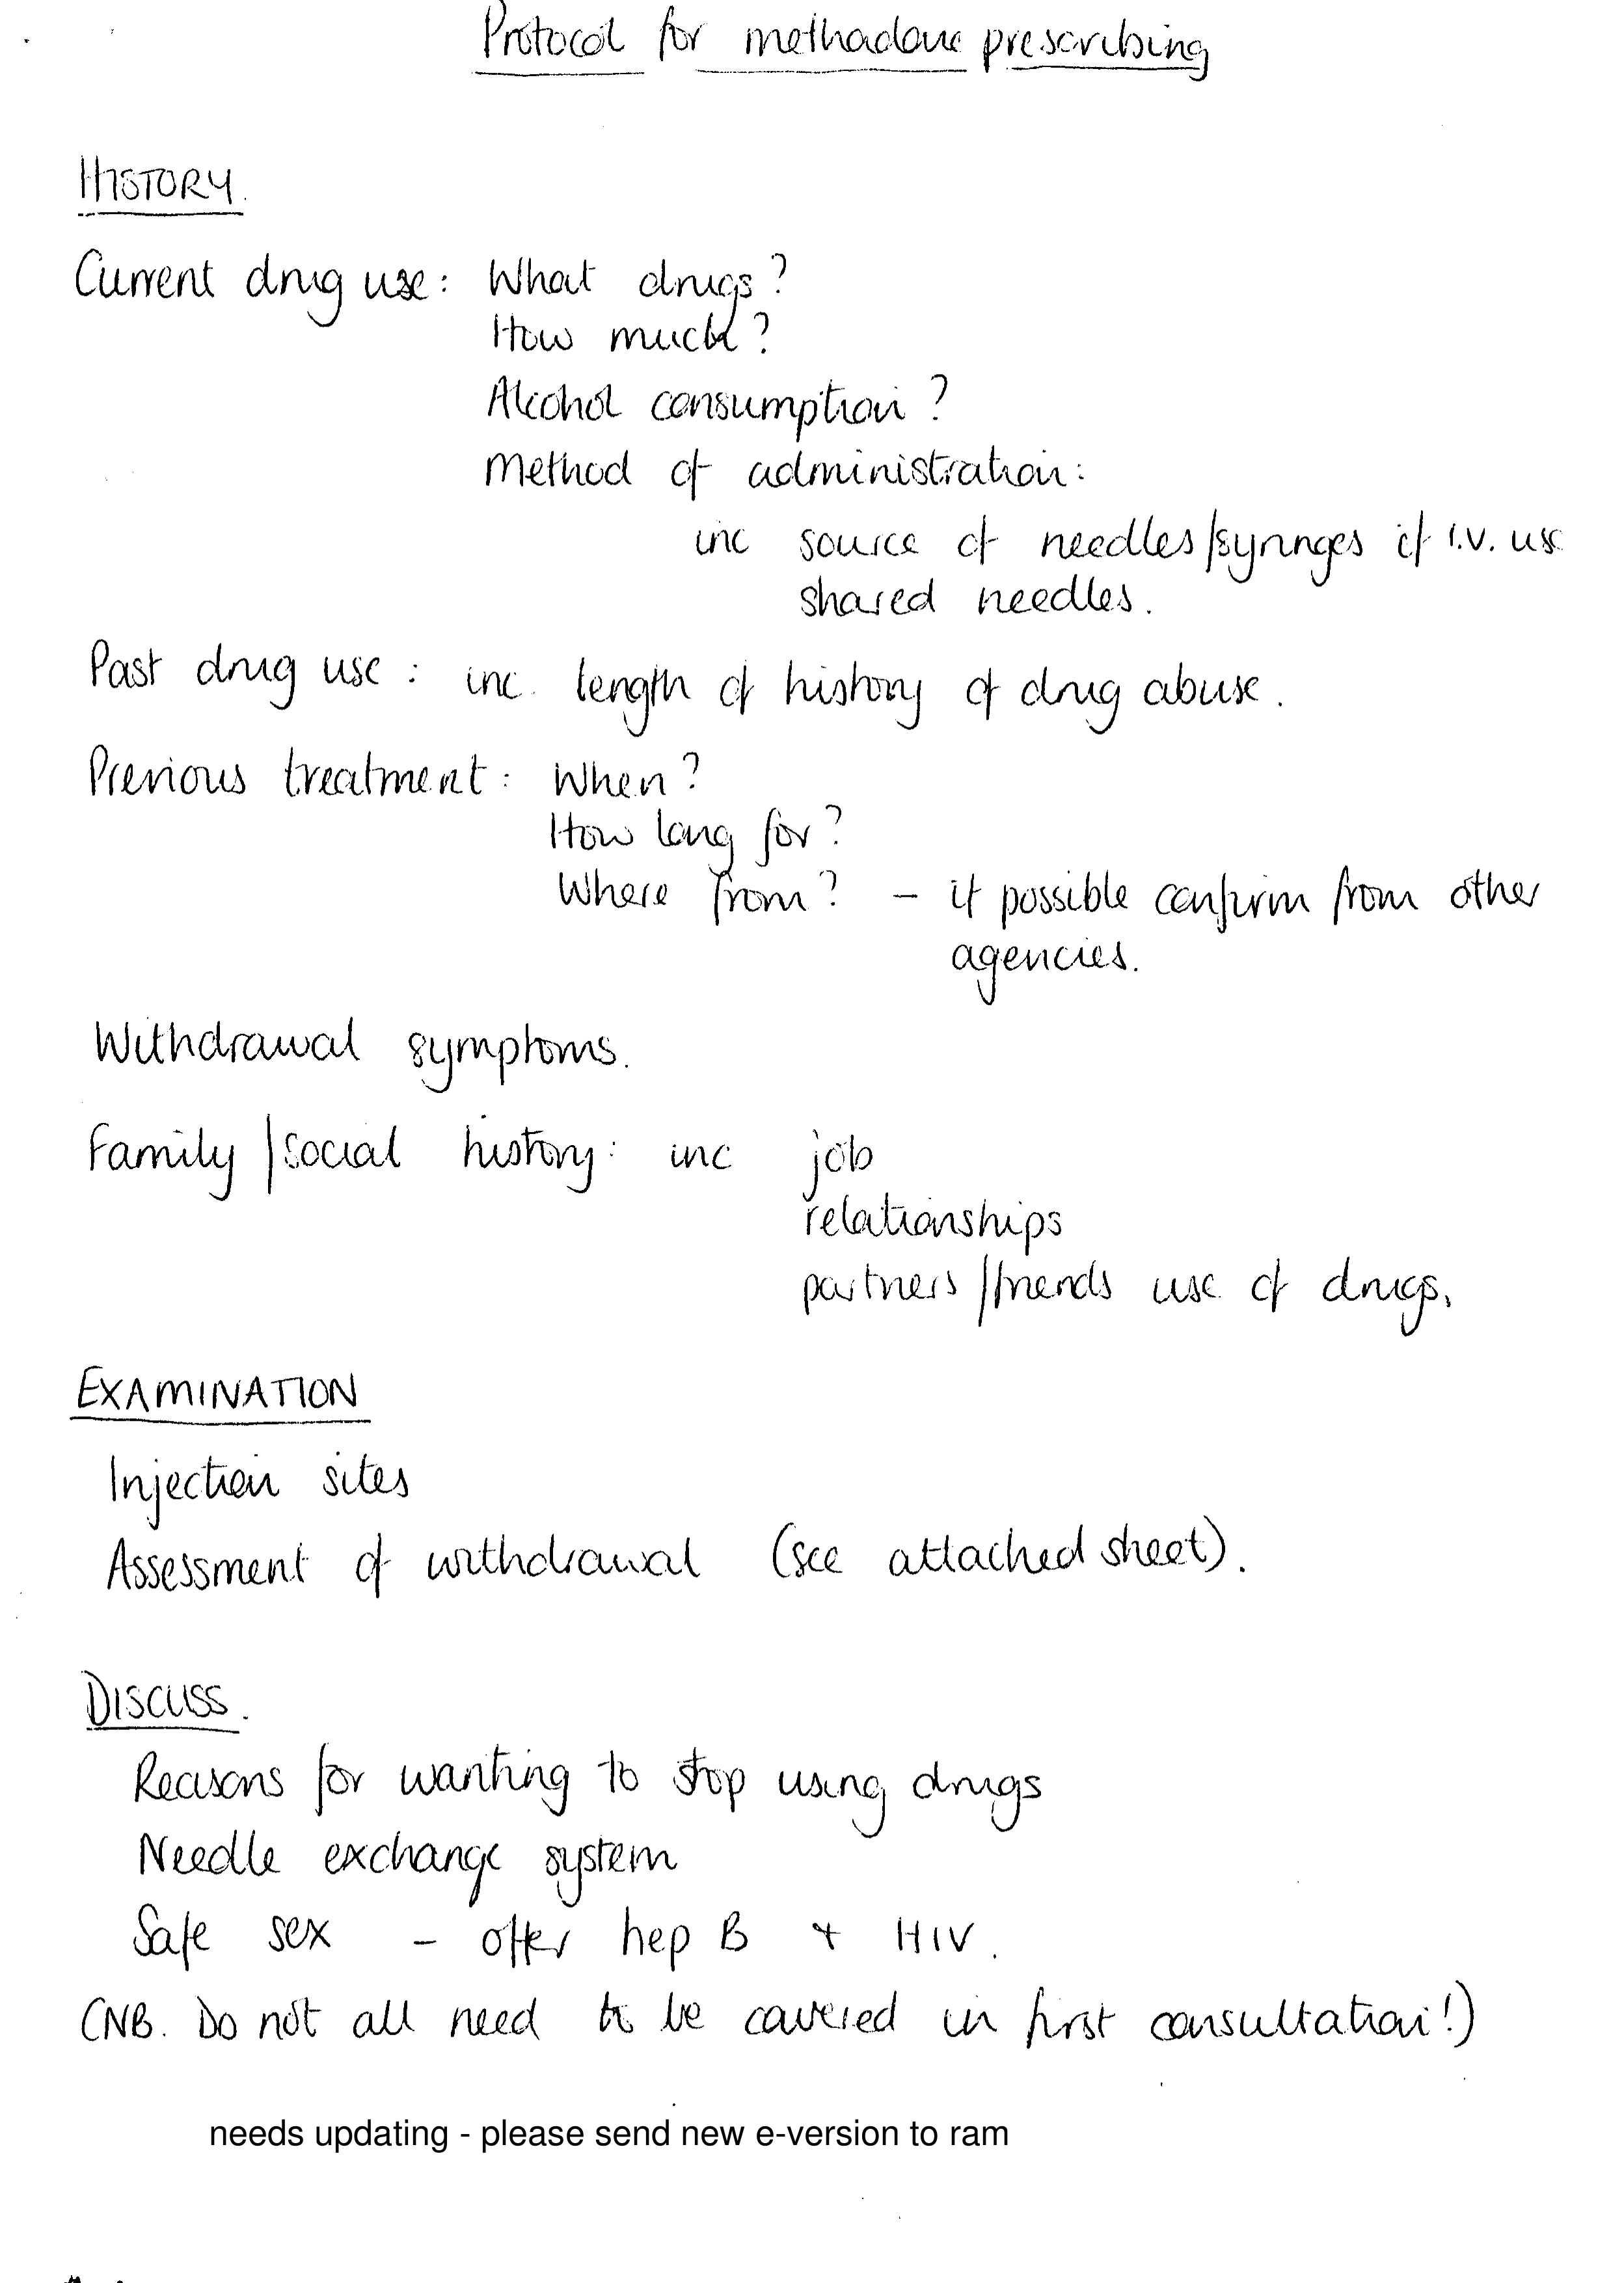 Protocol for methadone prescribing
HISTORY.
Current drug use: What drugs?
How much?
Alcohol consumption?
Method of administration:
inc source of needles/syringes if i.v. use
shared needles.
Past drug use: inc. length of history of drug abuse.
Previous treatment: When?
How long for?
Where from? - if possible confirm from other
agencies.
Withdrawal symptoms.
Family/social history: inc job
relationships
partners/friends use of drugs.
EXAMINATION
Injection sites
Assessment of withdrawal (see attached sheet).
DISCUSS.
Reasons for wanting to stop using drugs
Needle exchange system
Safe sex - offer hep B + HIV.
(NB. Do not all need to be covered in first consultation!)
needs updating - please send new e-version to ram